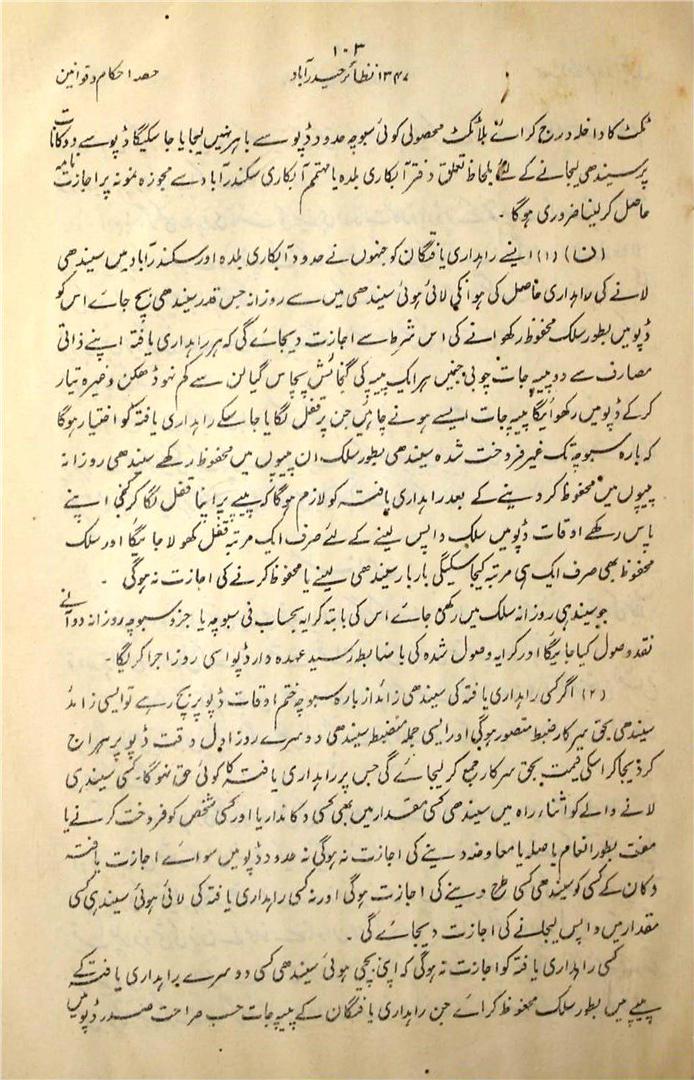 ۱۰۳
۱۳۴۷ نظائر حیدرآباد حصہ احکام و قوانین
ٹکٹ کا داخلہ درج کرائے بلا ٹکٹ محصولی کوئی سبوچہ حدود ڈپو سے باہر نہیں لیجایا جا سکیگا ڈپو سے دوکانات
پر سیندھی لیجانے کے لئے بلحاظ تعلق دفتر آبکاری بلدہ یا مہتمم آبکاری سکندرآباد سے مجوزہ نمونہ پر اجازت نامہ
حاصل کر لینا ضروری ہوگا ۔
(ن) (۱) ایسے راہداری یافتگان کو جنہوں نے حدود آبکاری بلدہ اور سکندرآباد میں سیندھی
لانے کی راہداری حاصل کی ہو انکی لائی ہوئی سیندھی میں سے روزانہ جس قدر سیندھی بچ جائے اس کو
ڈپو میں بطور سلک محفوظ رکھوانے کی اس شرط سے اجازت دیجائے گی کہ ہر راہداری یافتہ اپنے ذاتی
مصارف سے دو پیپہ جات چوبی جنمیں ہر ایک پیپہ کی گنجائش پچاس گیالن سے کم نہو ڈھکن وغیرہ تیار
کرکے ڈپو میں رکھوائیگا پیپہ جات ایسے ہونے چاہئیں جن پر قفل لگایا جا سکے راہداری یافتہ کو اختیار ہوگا
کہ بارہ سبوچہ تک غیر فروخت شدہ سیندھی بطور سلک ان پیپوں میں محفوظ رکھے سیندھی روزانہ
پیپوں میں محفوظ کر دینے کے بعد راہداری یافتہ کو لازم ہوگا کہ پیپے پر اپنا قفل لگا کر کنجی اپنے
پاس رکھے اوقات ڈپو میں سلک واپس لینے کے لئے صرف ایک مرتبہ قفل کھولا جائیگا اور سلک
محفوظ بھی صرف ایک ہی مرتبہ کیجاسکیگی بار بار سیندھی لینے یا محفوظ کرنے کی اجازت نہ ہوگی ۔
جو سیندھی روزانہ سلک میں رکھی جائے اس کی بابتہ کرایہ بحساب فی سبوچہ یا جزو سبوچہ روزانہ دو آنے
نقد وصول کیا جائیگا اور کرایہ وصول شدہ کی باضابطہ رسید عہدہ دار ڈپو اسی روز اجرا کریگا ۔
(۲) اگر کسی راہداری یافتہ کی سیندھی زائد از بارہ سبوچہ ختم اوقات ڈپو پر بچ رہے تو ایسی زائد
سیندھی بحق سرکار ضبط متصور ہوگی اور ایسی جملہ منضبط سیندھی دوسرے روز اول وقت ڈپو پر ہراج
کر دیجا کر اسکی قیمت بحق سرکار جمع کر لیجائے گی جس پر راہداری یافتہ کا کوئی حق نہوگا ۔ کسی سیندھی
لانے والے کو اثناء راہ میں سیندھی کسی مقدار میں بھی کسی دکاندار یا اور کسی شخص کو فروخت کرنے یا
مفت بطور انعام یا صلہ یا معاوضہ دینے کی اجازت نہ ہوگی نہ حدود ڈپو میں سوائے اجازت یافتہ
دکان کے کسی کو سیندھی کسی طرح دینے کی اجازت ہوگی اور نہ کسی راہداری یافتہ کی لائی ہوئی سیندھی کسی
مقدار میں واپس لیجانے کی اجازت دیجائے گی ۔
کسی راہداری یافتہ کو اجازت نہ ہوگی کہ اپنی بچی ہوئی سیندھی کسی دوسرے راہداری یافتہ کے
پیپے میں بطور سلک محفوظ کرائے جن راہداری یافتگان کے پیپہ جات حسب صراحت صدر ڈپو میں